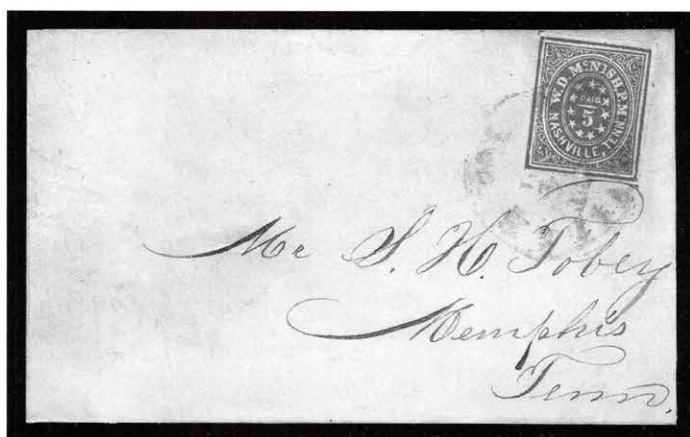 W.D. McNISH, P.M.
PAID
5
NASHVILLE, TENN
Mr S. H. Tobey
Memphis
Tenn.